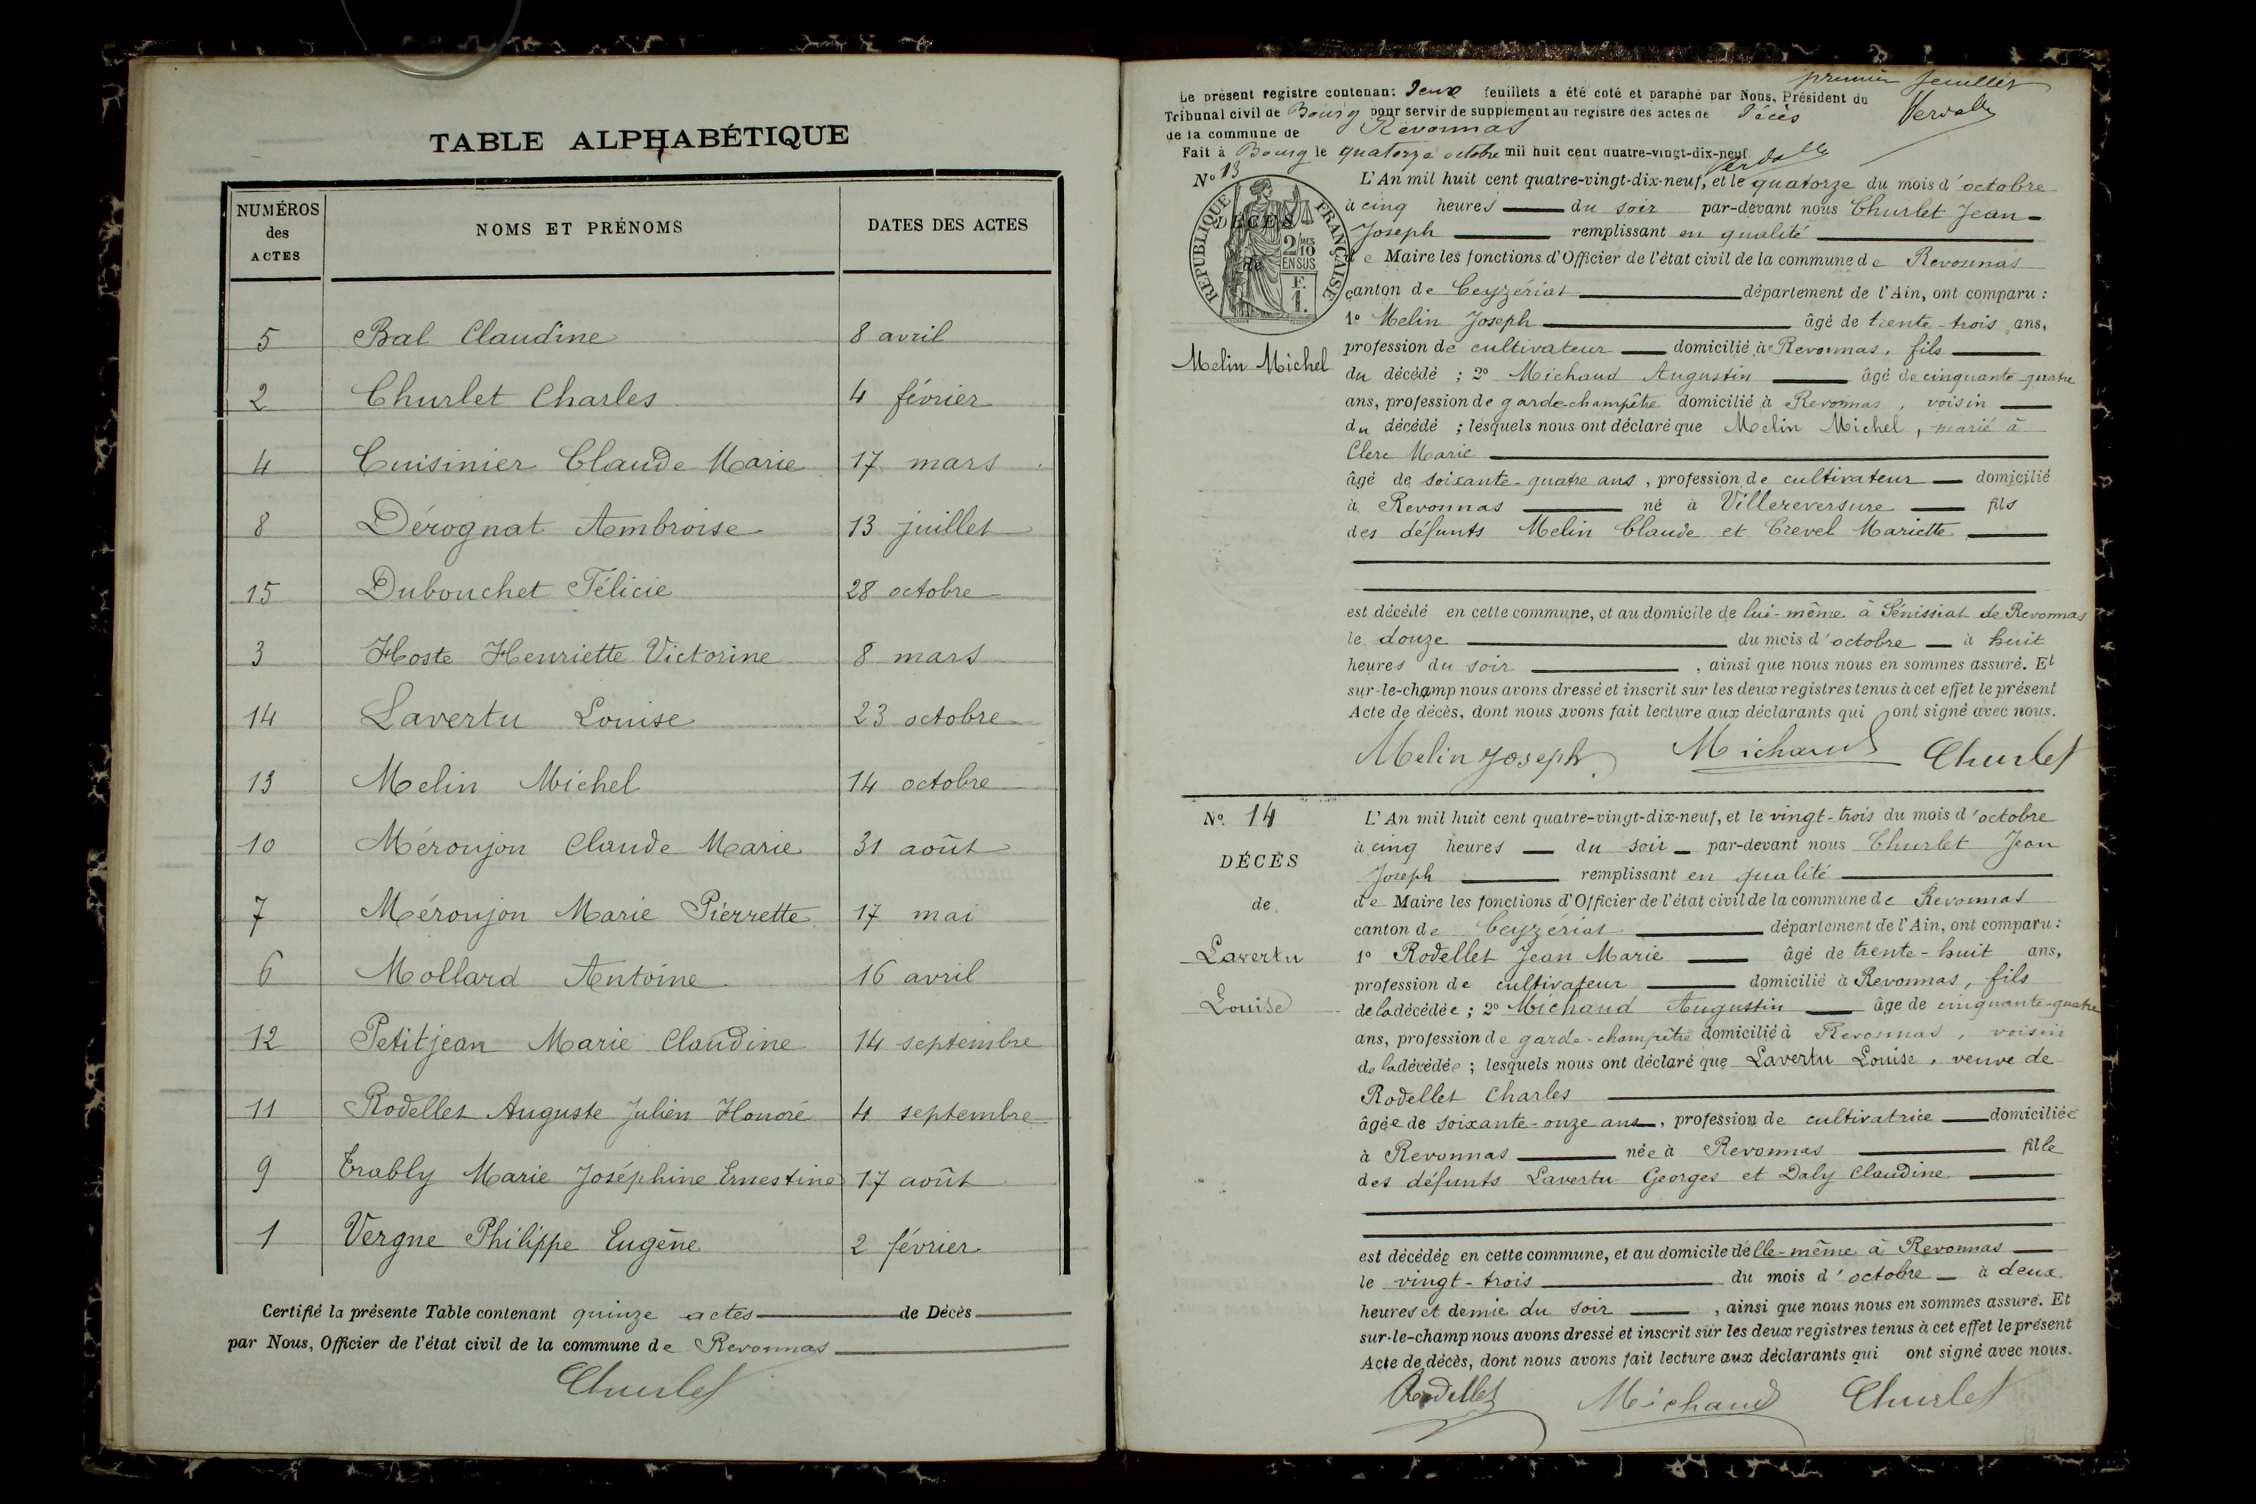 TABLE ALPHABÉTIQUE
NUMÉROS des ACTES
NOMS ET PRÉNOMS
DATES DES ACTES
5 Bal Claudine 8 avril
2 Churlet Charles 4 février
4 Cuisinier Claude Marie 17 mars
8 Dérognat Ambroise 13 juillet
15 Dubouchet Félicie 28 octobre
3 Hoste Henriette Victorine 8 mars
14 Lavertu Louise 23 octobre
13 Melin Michel 14 octobre
10 Méroujon Claude Marie 31 août
7 Méroujon Marie Pierrette 17 mai
6 Mollard Antoine 16 avril
12 Petitjean Marie Claudine 14 septembre
11 Rodellet Auguste Julien Honoré 4 septembre
9 Trably Marie Joséphine Ernestine 17 août
1 Vergne Philippe Eugène 2 février
Certifié la présente Table contenant quinze actes de Décès
par Nous, Officier de l'état civil de la commune de Revonnas
Churlet
premier feuillet
Le présent registre contenant deux feuillets a été coté et paraphé par Nous, Président du
Tribunal civil de Bourg pour servir de supplément au registre des actes de Décès
de la commune de Revonnas
Fait à Bourg le quatorze octobre mil huit cent quatre-vingt-dix-neuf
No 13
DÉCÈS
de
RÉPUBLIQUE FRANÇAISE
2/10 EN SUS
F. 1.
Melin Michel
L'An mil huit cent quatre-vingt-dix-neuf, et le quatorze du mois d'octobre
à cinq heures du soir par-devant nous Churlet Jean-
Joseph remplissant en qualité
de Maire les fonctions d'Officier de l'état civil de la commune de Revonnas
canton de Ceyzériat département de l'Ain, ont comparu :
1o Melin Joseph âgé de trente-trois ans,
profession de cultivateur domicilié à Revonnas, fils
du décédé ; 2o Michaud Augustin âgé de cinquante-quatre
ans, profession de garde-champêtre domicilié à Revonnas, voisin
du décédé ; lesquels nous ont déclaré que Melin Michel, marié à
Clerc Marie
âgé de soixante-quatre ans, profession de cultivateur domicilié
à Revonnas né à Villereversure fils
des défunts Melin Claude et Crevel Mariette
est décédé en cette commune, et au domicile de lui-même à Sénissiat de Revonnas
le douze du mois d'octobre à huit
heures du soir , ainsi que nous nous en sommes assuré. Et
sur-le-champ nous avons dressé et inscrit sur les deux registres tenus à cet effet le présent
Acte de décès, dont nous avons fait lecture aux déclarants qui ont signé avec nous.
Melin Joseph Michaud Churlet
No. 14
DÉCÈS
de
Lavertu
Louise
L'An mil huit cent quatre-vingt-dix-neuf, et le vingt-trois du mois d'octobre
à cinq heures du soir par-devant nous Churlet Jean
Joseph remplissant en qualité
de Maire les fonctions d'Officier de l'état civil de la commune de Revonnas
canton de Ceyzériat département de l'Ain, ont comparu :
1o Rodellet Jean Marie âgé de trente-huit ans,
profession de cultivateur domicilié à Revonnas, fils
de la décédée ; 2o Michaud Augustin âgé de cinquante-quatre
ans, profession de garde-champêtre domicilié à Revonnas, voisin
de la décédée ; lesquels nous ont déclaré que Lavertu Louise, veuve de
Rodellet Charles
âgée de soixante-onze ans, profession de cultivatrice domiciliée
à Revonnas née à Revonnas fille
des défunts Lavertu Georges et Daly Claudine
est décédée en cette commune, et au domicile d'elle-même à Revonnas
le vingt-trois du mois d'octobre à deux
heures et demie du soir , ainsi que nous nous en sommes assuré. Et
sur-le-champ nous avons dressé et inscrit sur les deux registres tenus à cet effet le présent
Acte de décès, dont nous avons fait lecture aux déclarants qui ont signé avec nous.
Rodellet Michaud Churlet